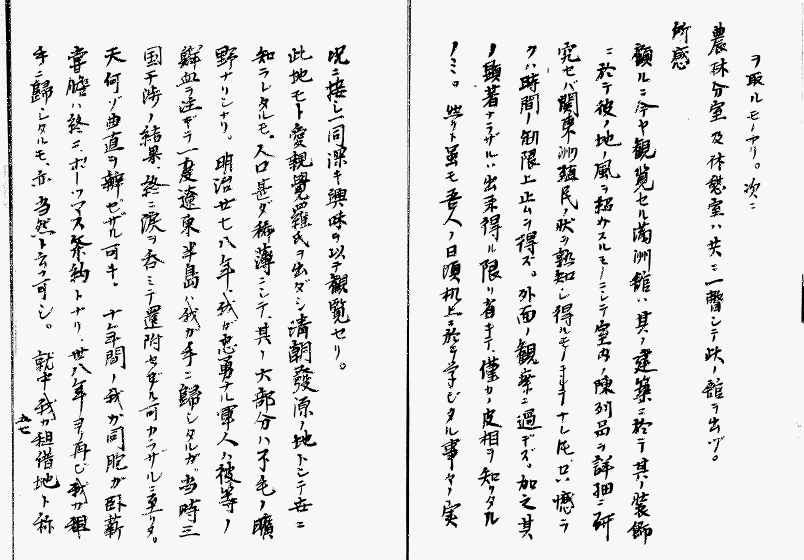 ヲ取ルモノナリ。次ニ
農林分室及休憩室ハ共ニ一瞥シテ此ノ館ヲ出ヅ。
所感
顧ルニ今ヤ観覧セル満洲館ハ其ノ建築ニ於テ其ノ装飾
ニ於テ彼ノ地ノ風ヲ紹介スルモノニシテ室内ノ陳列品ヲ詳細ニ研
究セバ関東洲殖民ノ状ヲ熟知シ得ルモノナレ𪜈只憾ラ
クハ時間ノ制限上止ムヲ得ズ。外面ノ観察ニ過ギズ。加之其
ノ顕著ナラザルハ出来得ル限リ省キテ、僅カノ皮相ヲ知リタル
ノミ。然リト雖モ吾人ノ日頃机上ニ於テ学ビタル事ヤノ実
況ニ接シ一同深キ興味ヲ以テ観覧セリ。
此地モト愛親覚羅氏ヲ出ダシ清朝發源ノ地トシテ世ニ
知ラレタルモ、人口甚ダ稀薄ニシテ、其ノ大部分ハ不毛ノ曠
野ナリシナリ。明治廿七八年、我ガ忠勇ナル軍人ハ彼等ノ
鮮血ヲ注ギテ一度遼東半島ハ我ガ手ニ歸シタルガ、当時三
国干渉ノ結果、終ニ涙ヲ呑ミテ還附セザル可カラザルニ至リタ。
天何ゾ曲直ヲ辨ゼザル可キ。十年間ノ我ガ同胞ガ臥薪
嘗膽ハ終ニ、ポーツマス条約トナリ、丗八年ヨリ再ビ我ガ
手ニ歸シタルモ、亦当然ト云フ可シ。就中我ガ租借地ト称
五七